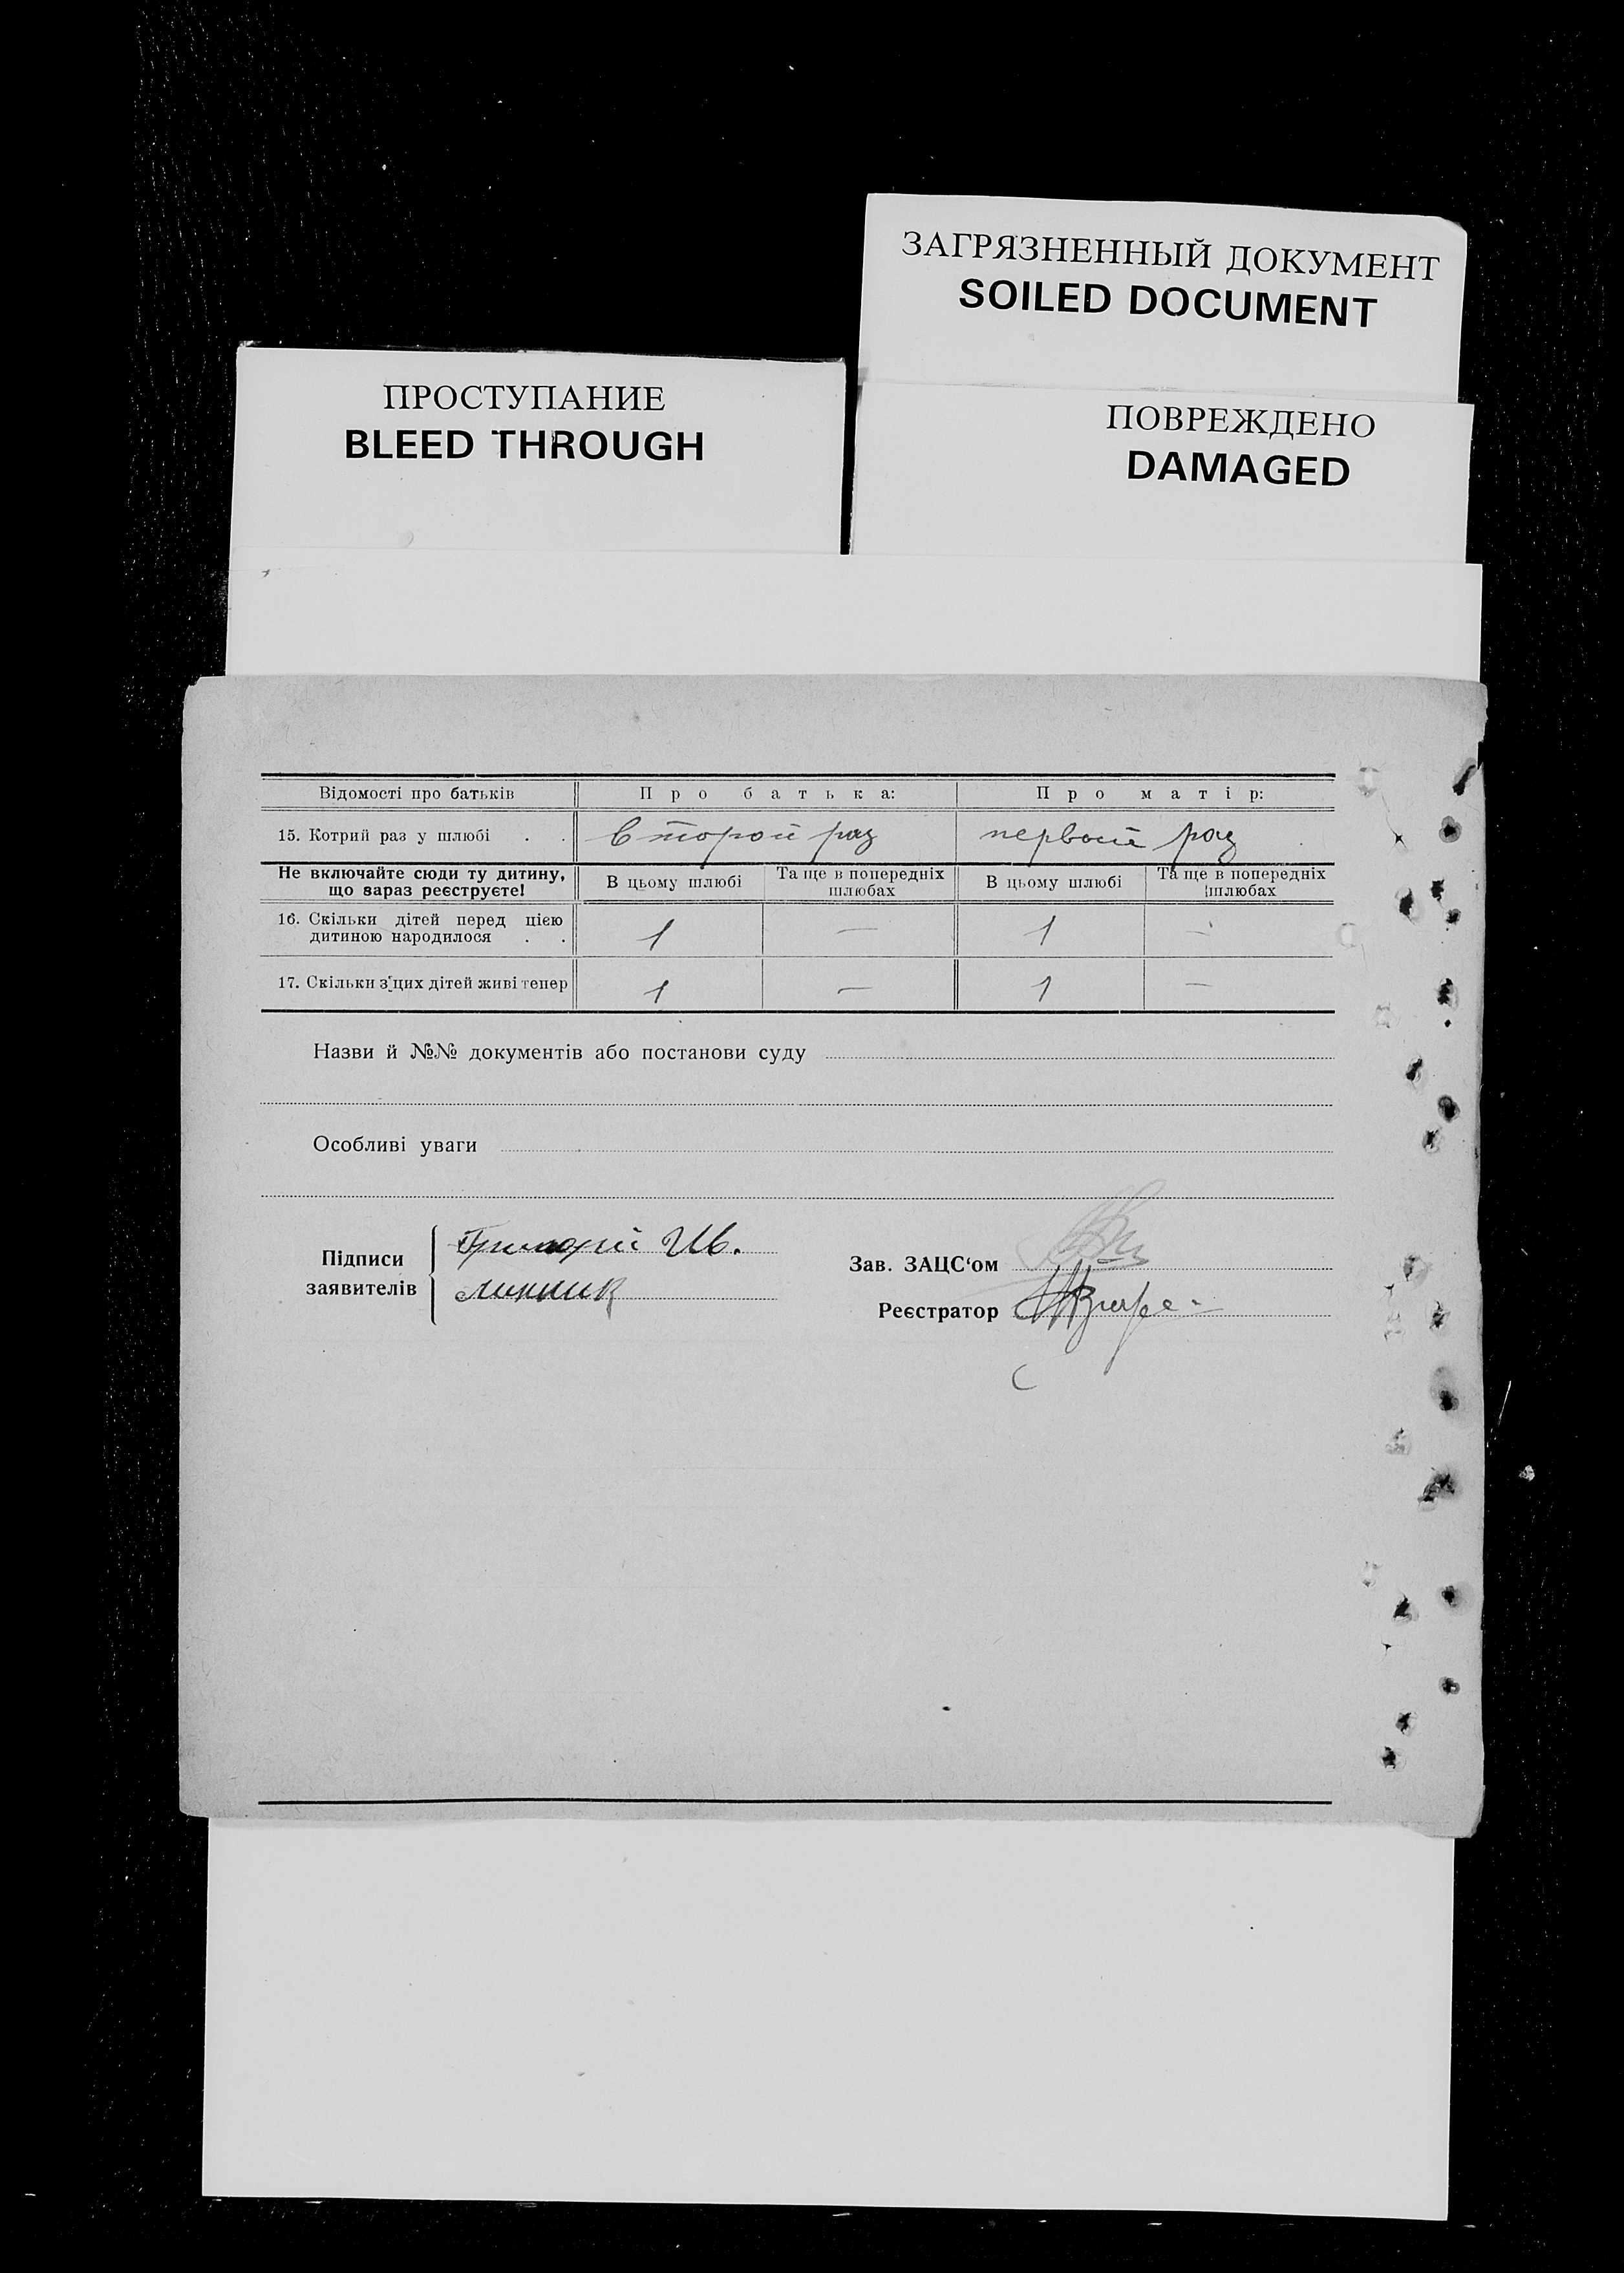 ЗАГРЯЗНЕННЫЙ ДОКУМЕНТ
SOILED DOCUMENT
ПРОСТУПАНИЕ
BLEED THROUGH
ПОВРЕЖДЕНО
DAMAGED
Відомості про батьків Про батька: Про матір:
15. Котрий раз у шлюбі . . второй раз первый раз
Не включайте сюди ту дитину, що зараз реєструєте! В цьому шлюбі Та ще в попередніх шлюбах В цьому шлюбі Та ще в попередніх шлюбах
16. Скільки дітей перед цією
дитиною народилося . . 1 — 1 —
17. Скільки з цих дітей живі тепер 1 — 1 —
Назви й №№ документів або постанови суду
Особливі уваги
Підписи
заявителів
Григорій Ив.
Линник
Зав. ЗАЦС‘ом
Реєстратор